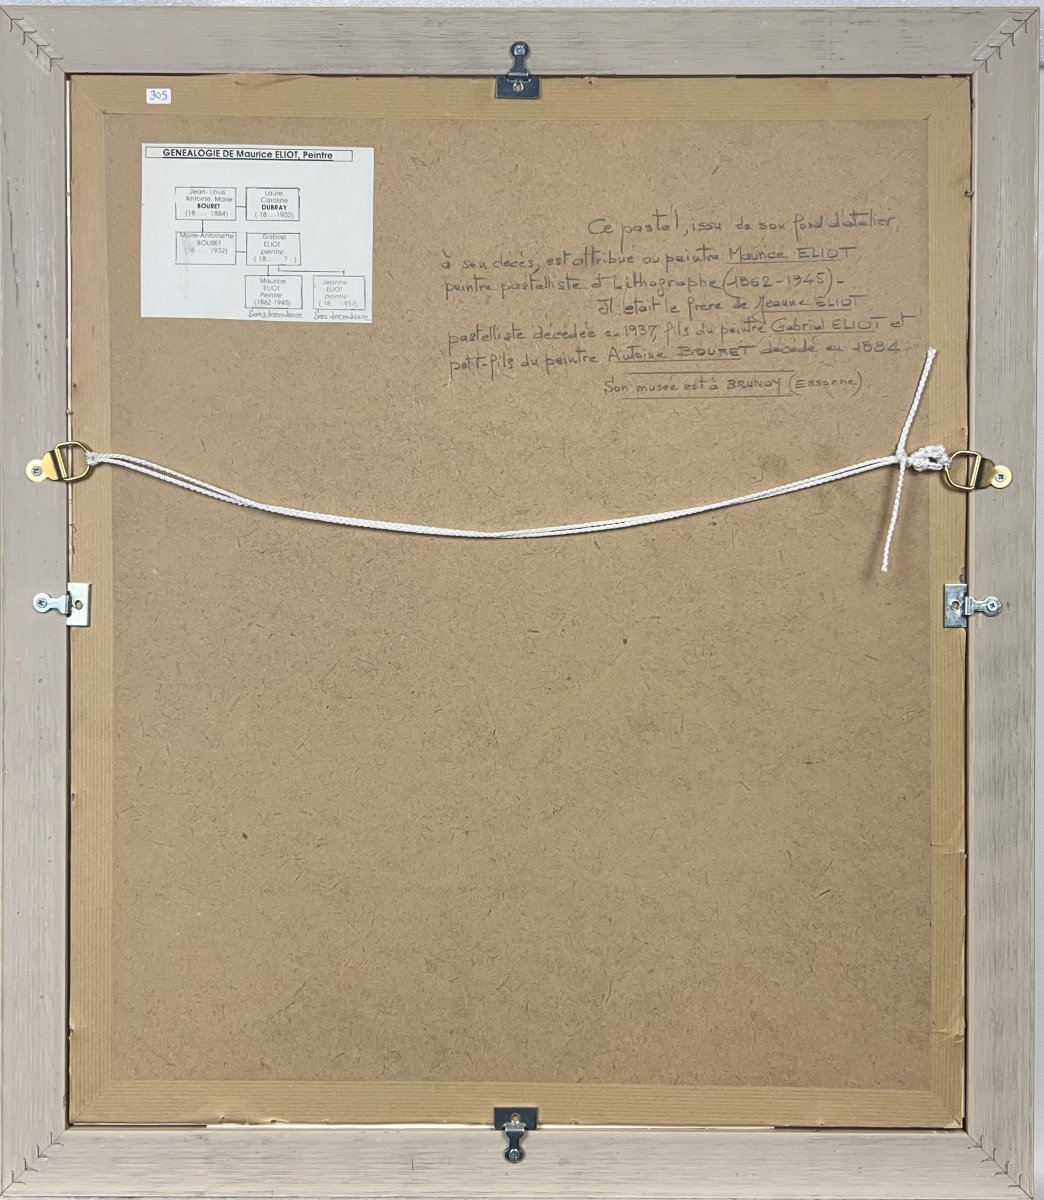 305
GENEALOGIE DE Maurice ELIOT, Peintre
Jean-Louis
Antoine, Marie
BOURET
(18...... 1884)
Laure,
Caroline
DUBRAY
( 18..... 1902)
Marie-Antoinette
BOURET
(18.... - 1932)
Gabriel
ELIOT
peintre
( 18....... ? )
Maurice
ELIOT
Peintre
(1862-1945)
Jeanne
ELIOT
peintre
( 18......1937)
Sans descendance
Sans descendance
Ce pastel, issu de son fond d'atelier
à son decés, est attribué au peintre Maurice ELIOT,
peintre pastelliste et Lithographe (1862-1945)-
Il etait le frère de Jeanne ELIOT
pastelliste décédée en 1937, fils du peintre Gabriel ELIOT et
petit-fils du peintre Antoine BOURET décédé en 1884
Son musée est à BRUNOY (Essonne)